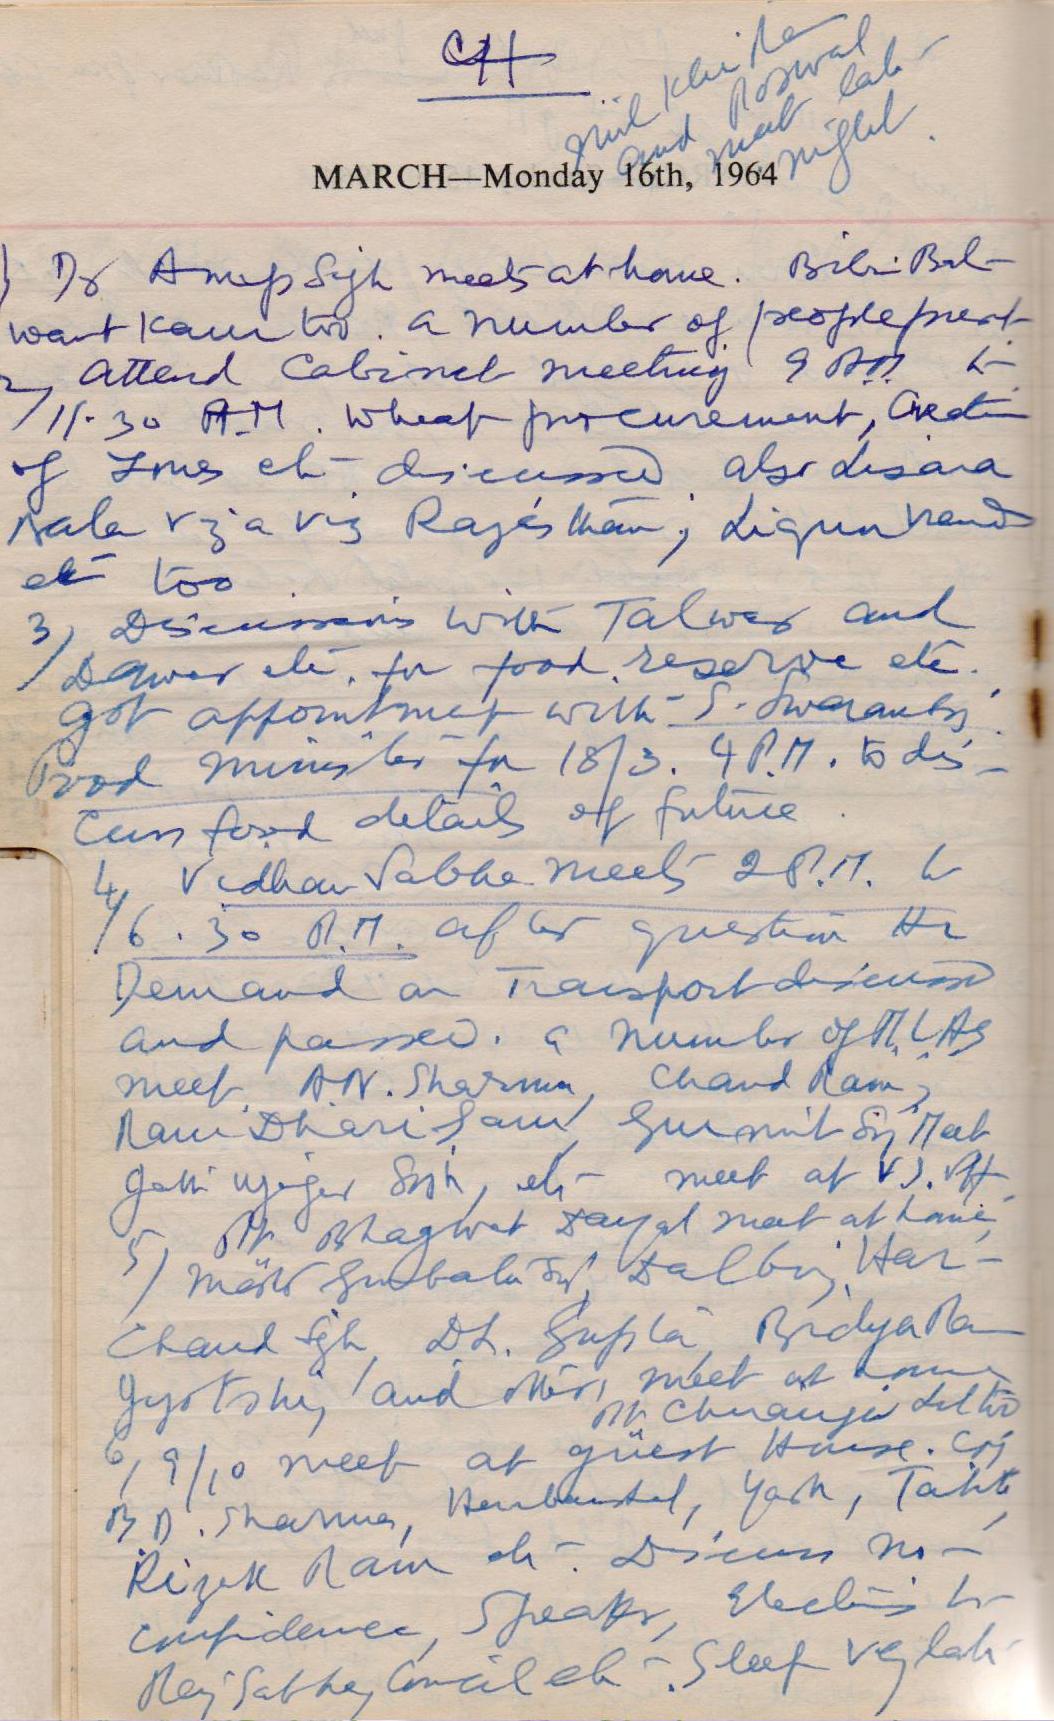 CH
and
meet late
night.
MARCH—Monday 16th, 1964
1) Dr Anup Sigh meets at home. Bibi Bal-
want Kaur too. a number of people
2, attend Cabinet meeting 9 AM to
11.30 A.M. wheat procurement,
of Zones etc discussed also
Nala viz a viz Rajasthan;
etc too
3) Discussions with Talwar and
etc. for food reserve etc.
got appointment with S. Swaransi
Food Minister for 18/3. 4 P.M. to dis-
cuss food details of future.
4, Vidhan Sabha meets 2 P.M. to
6.30 P.M. after question Hr
Demand on Transport discussed
and passed. a number of M.L.As
meet. A.N. Sharma, Chand Ram,
Ram Dhari Gaur, Gurmit Sig
Ujagar Sigh, etc meet at V.S.
5) Pt Bhagwat Dayal meet at home,
Dalbir, Har-
Chand Sgh, D.L. Gupta,
and others, meet at home
Pt Chiranji Lal too
6, 9/10 meet at guest House.
B.D. Sharma, Harbanslal, Yash,
Rizak Ram etc. Discuss no-
confidence, Speaker, Elections to
Raj Sabha, Council etc. Sleep very late